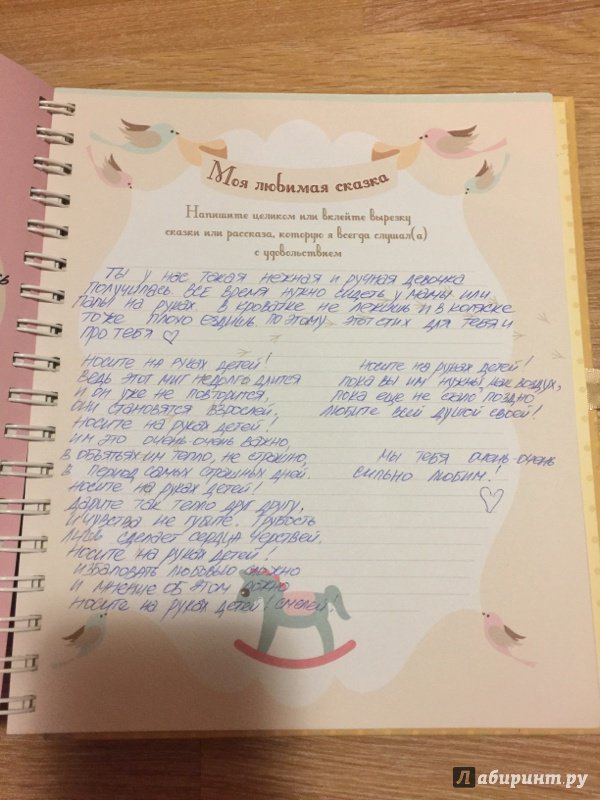 Моя любимая сказка
Напишите целиком или вклейте вырезку
сказки или рассказа, которую я всегда слушал(а)
с удовольствием
Ты у нас такая нежная и ручная девочка
получилась. Все время нужно сидеть у мамы или
папы на руках. В кроватке не лежишь и в коляске
тоже плохо ездишь. Поэтому этот стих для тебя и
про тебя ♡
Носите на руках детей!
Ведь этот миг недолго длится
и он уже не повторится,
они становятся взрослей.
Носите на руках детей!
им это очень-очень важно,
в объятьях им тепло, не страшно,
в период самых страшных дней.
Носите на руках детей!
Дарите так тепло друг другу,
и чувства не губите. Грубость
лишь сделает сердца черствей.
Носите на руках детей!
избаловать любовью сложно
и мнение об этом ложно
Носите на руках детей! смелей.
Носите на руках детей!
пока вы им нужны, как воздух,
пока еще не стало поздно
любите всей душой своей!
Мы тебя очень-очень
сильно любим!
♡
сь
Лабиринт.ру